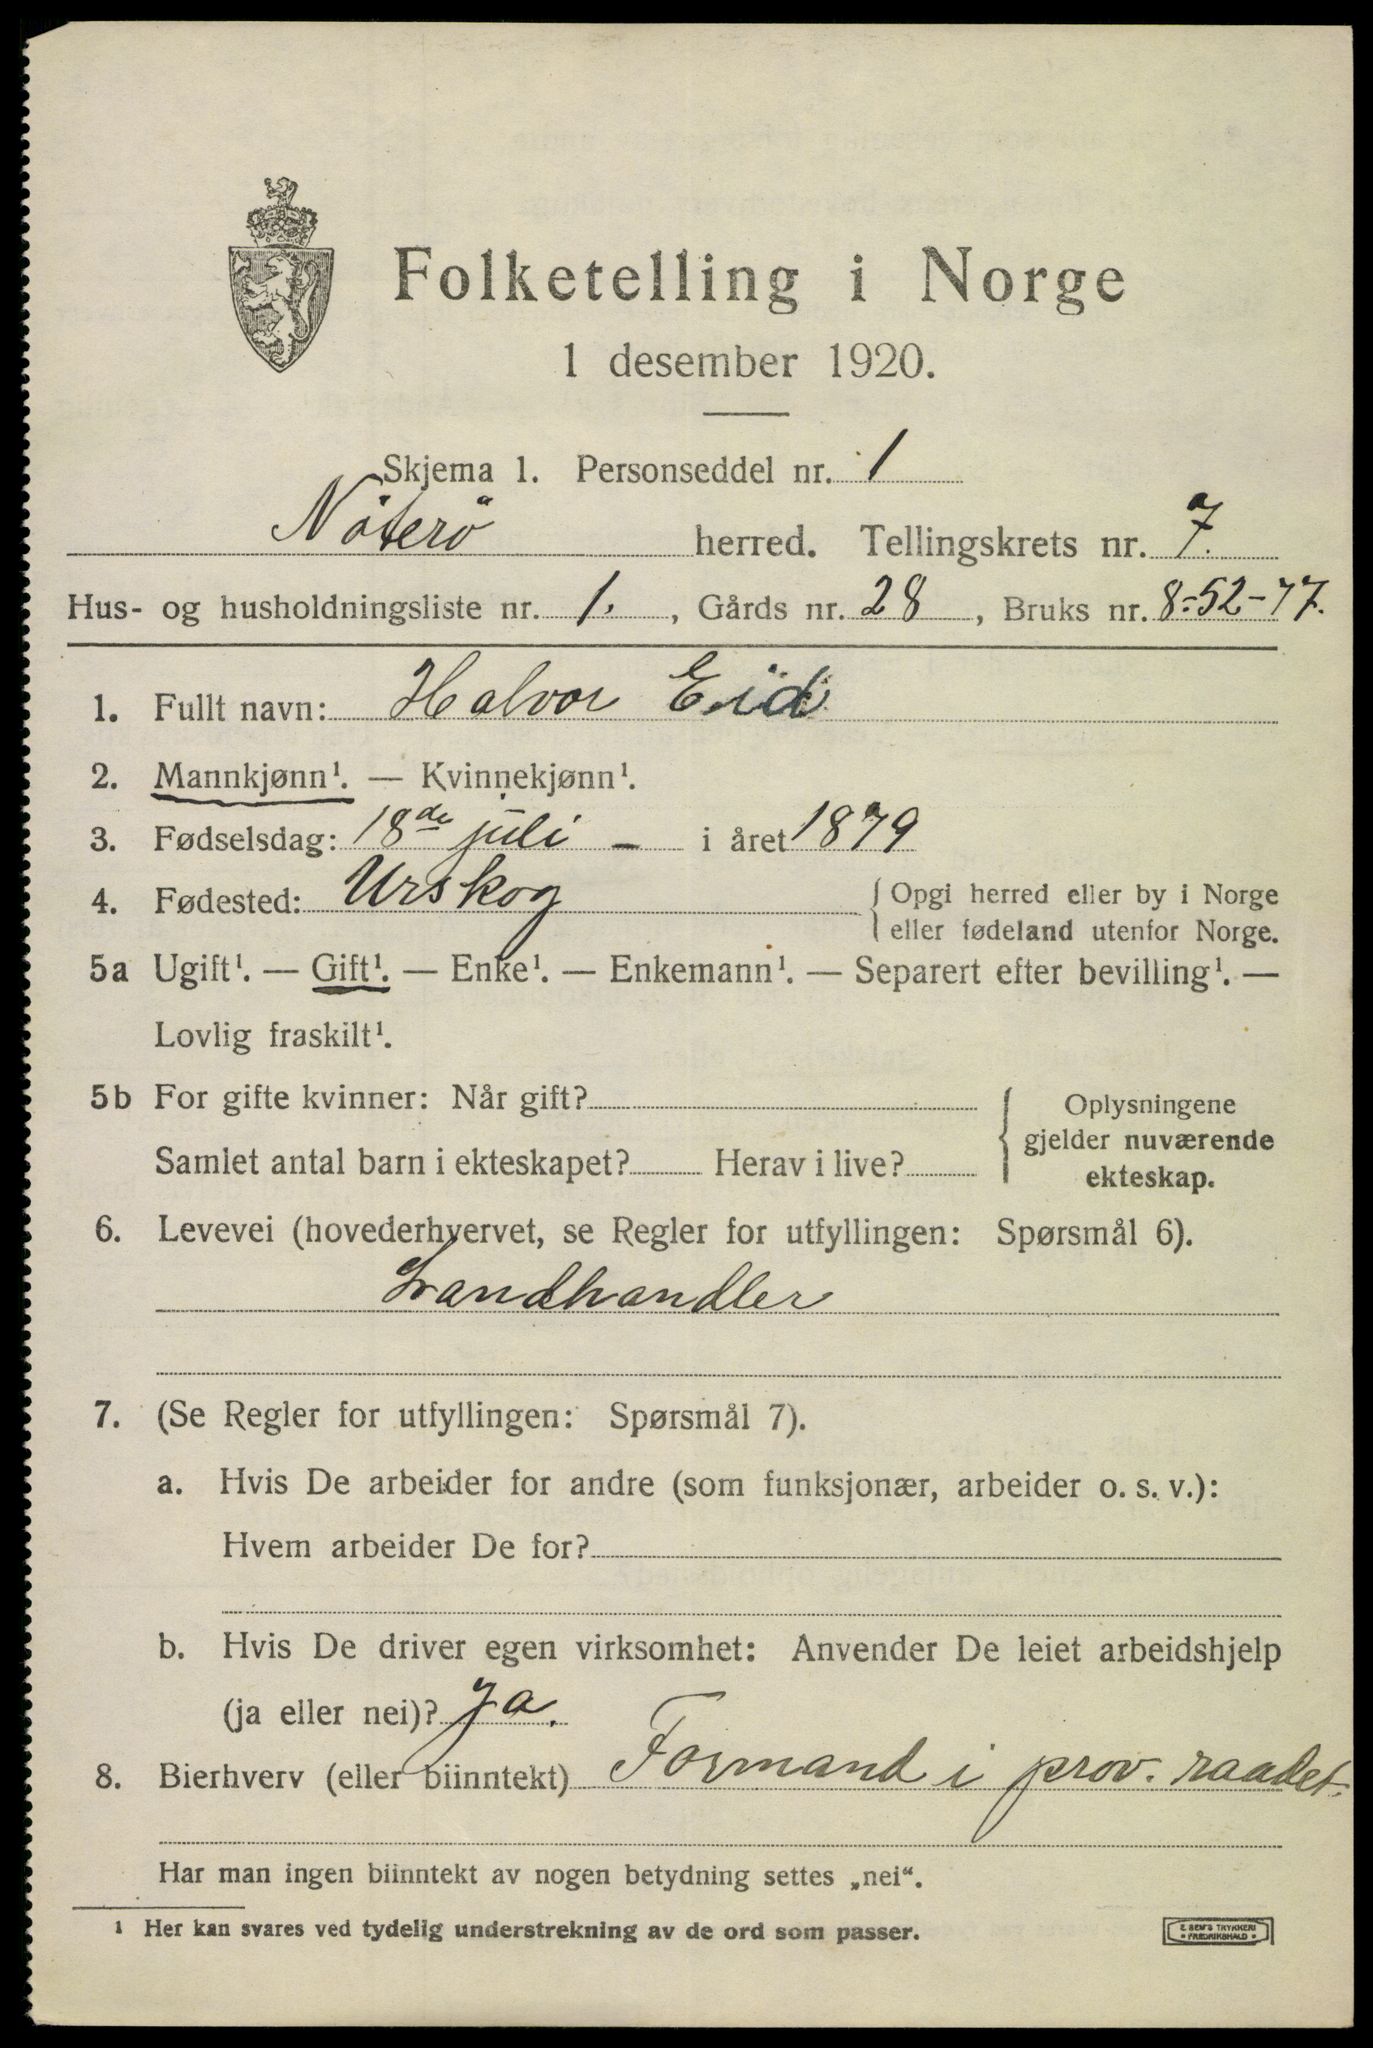 Folketelling i Norge
1 desember 1920.
Skjema 1. Personseddel nr. 1
Nöterö herred. Tellingskrets nr. 7.
Hus- og husholdningsliste nr. 1. , Gårds nr. 28 , Bruks nr. 8-52-77.
1. Fullt navn: Halvor Eid
2. Mannkjønn¹. — Kvinnekjønn¹.
3. Fødselsdag: 18de juli – i året 1879
4. Fødested: Urskog { Opgi herred eller by i Norge
eller fødeland utenfor Norge.
5a Ugift¹. — Gift¹. — Enke¹. — Enkemann¹. — Separert efter bevilling¹. —
Lovlig fraskilt¹.
5b For gifte kvinner: Når gift?
Samlet antal barn i ekteskapet? Herav i live?
{ Oplysningene
gjelder nuværende
ekteskap.
6. Levevei (hovederhvervet, se Regler for utfyllingen: Spørsmål 6).
Landhandler
7. (Se Regler for utfyllingen: Spørsmål 7).
a. Hvis De arbeider for andre (som funksjonær, arbeider o. s. v.):
Hvem arbeider De for?
b. Hvis De driver egen virksomhet: Anvender De leiet arbeidshjelp
(ja eller nei)? Ja.
8. Bierhverv (eller biinntekt) Formand i prov. raadet.
Har man ingen biinntekt av nogen betydning settes „nei“.
¹ Her kan svares ved tydelig understrekning av de ord som passer.
E. SEM'S TRYKKERI
• FREDRIKSHALD •